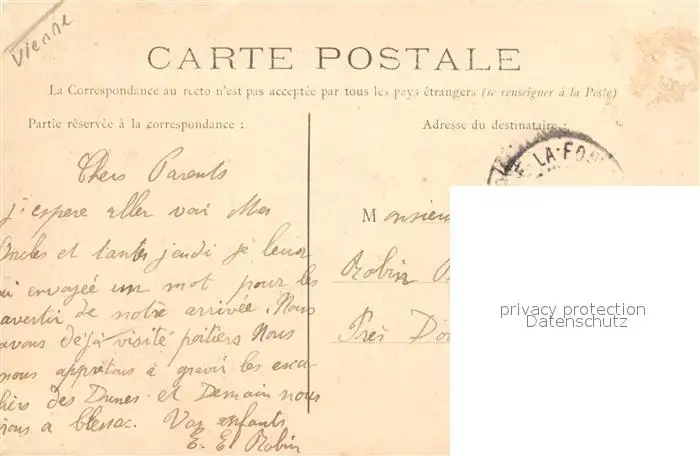 Vienne
CARTE POSTALE
La Correspondance au recto n'est pas acceptée par tous les pays étrangers (se renseigner à la Poste)
Partie réservée à la correspondance :
Adresse du destinataire :
LA-FO
Chers Parents
j'espere aller voir Mes
Oncles et tantes jeudi je leur
ai envoyée un mot pour les
avertir de notre arrivée. Nous
avons déjà visité poitiers Nous
nous apprêtons à gravir les esca
liers des Dunes et Demain nous
irons a blessac. Vos enfants
E. Et Robin
Monsieur
Robin
Près
privacy protection
Datenschutz